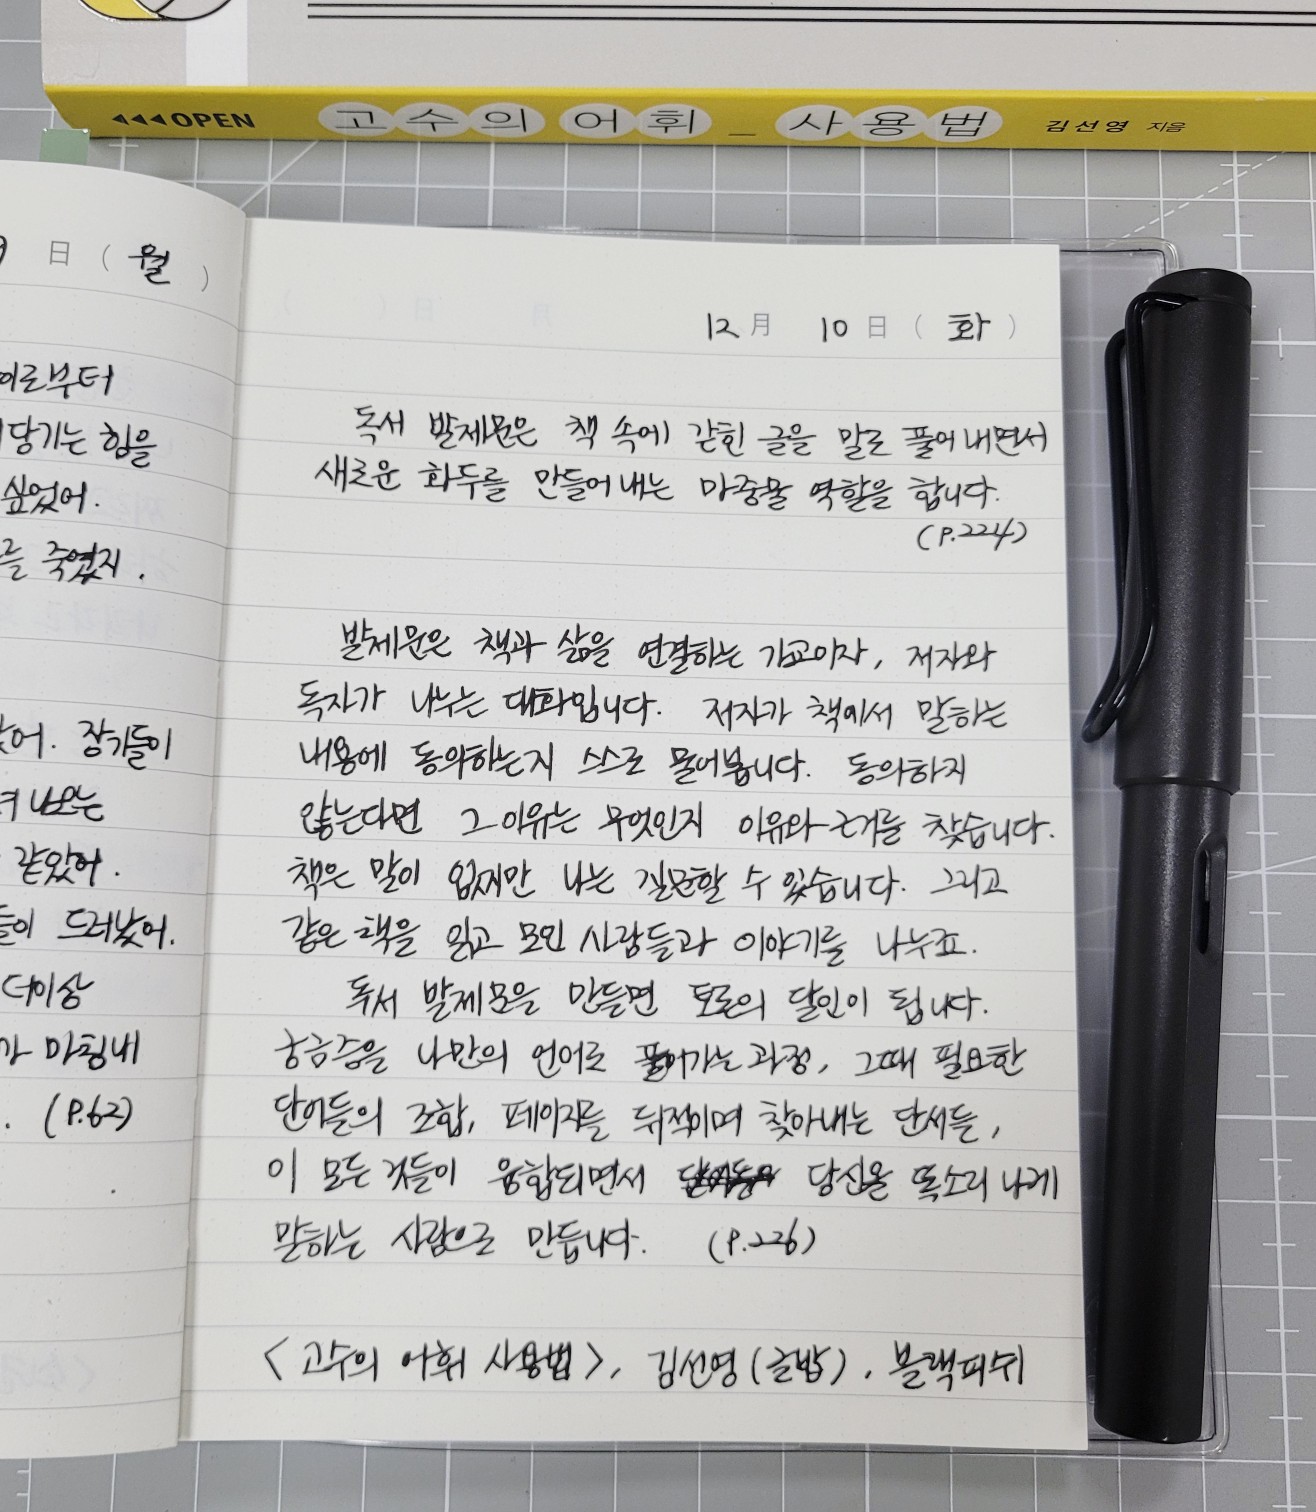 ◀◀◀OPEN 고수의 어휘_사용법 김선영 지음
9 日 ( 월 )
이로부터
당기는 힘을
싶었어.
를 죽였지.
어. 장기들이
나오는
같았어.
들이 드러났어.
더이상
가 마침내
. (P.62)
12 月 10 日 ( 화 )
독서 발제문은 책 속에 갇힌 글을 말로 풀어 내면서
새로운 화두를 만들어 내는 마중물 역할을 합니다.
(P.224)
발제문은 책과 삶을 연결하는 가교이자, 저자와
독자가 나누는 대화입니다. 저자가 책에서 말하는
내용에 동의하는지 스스로 물어봅니다. 동의하지
않는다면 그 이유는 무엇인지 이유와 근거를 찾습니다.
책은 말이 없지만 나는 질문할 수 있습니다. 그리고
같은 책을 읽고 모인 사람들과 이야기를 나누죠.
독서 발제문을 만들면 토론의 달인이 됩니다.
궁금증을 나만의 언어로 풀어가는 과정, 그때 필요한
단어들의 조합, 페이지를 뒤적이며 찾아내는 단서들,
이 모든 것들이 융합되면서 당신을 똑소리 나게
말하는 사람으로 만듭니다. (P.226)
<고수의 어휘 사용법>, 김선영(글밥), 블랙피쉬